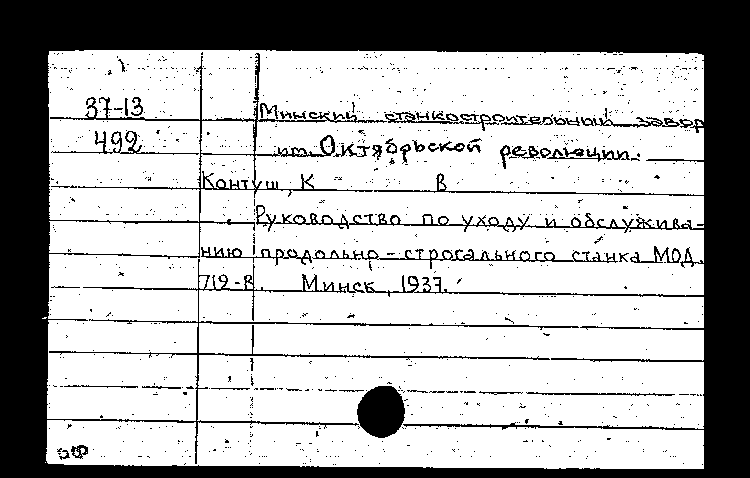 37-13
492
Минский станкостроительный завод
им. Октябрьской революции.
Контуш, К В
Руководство по уходу и обслужива-
нию продольно-строгального станка МОД.
712-В. Минск, 1937.